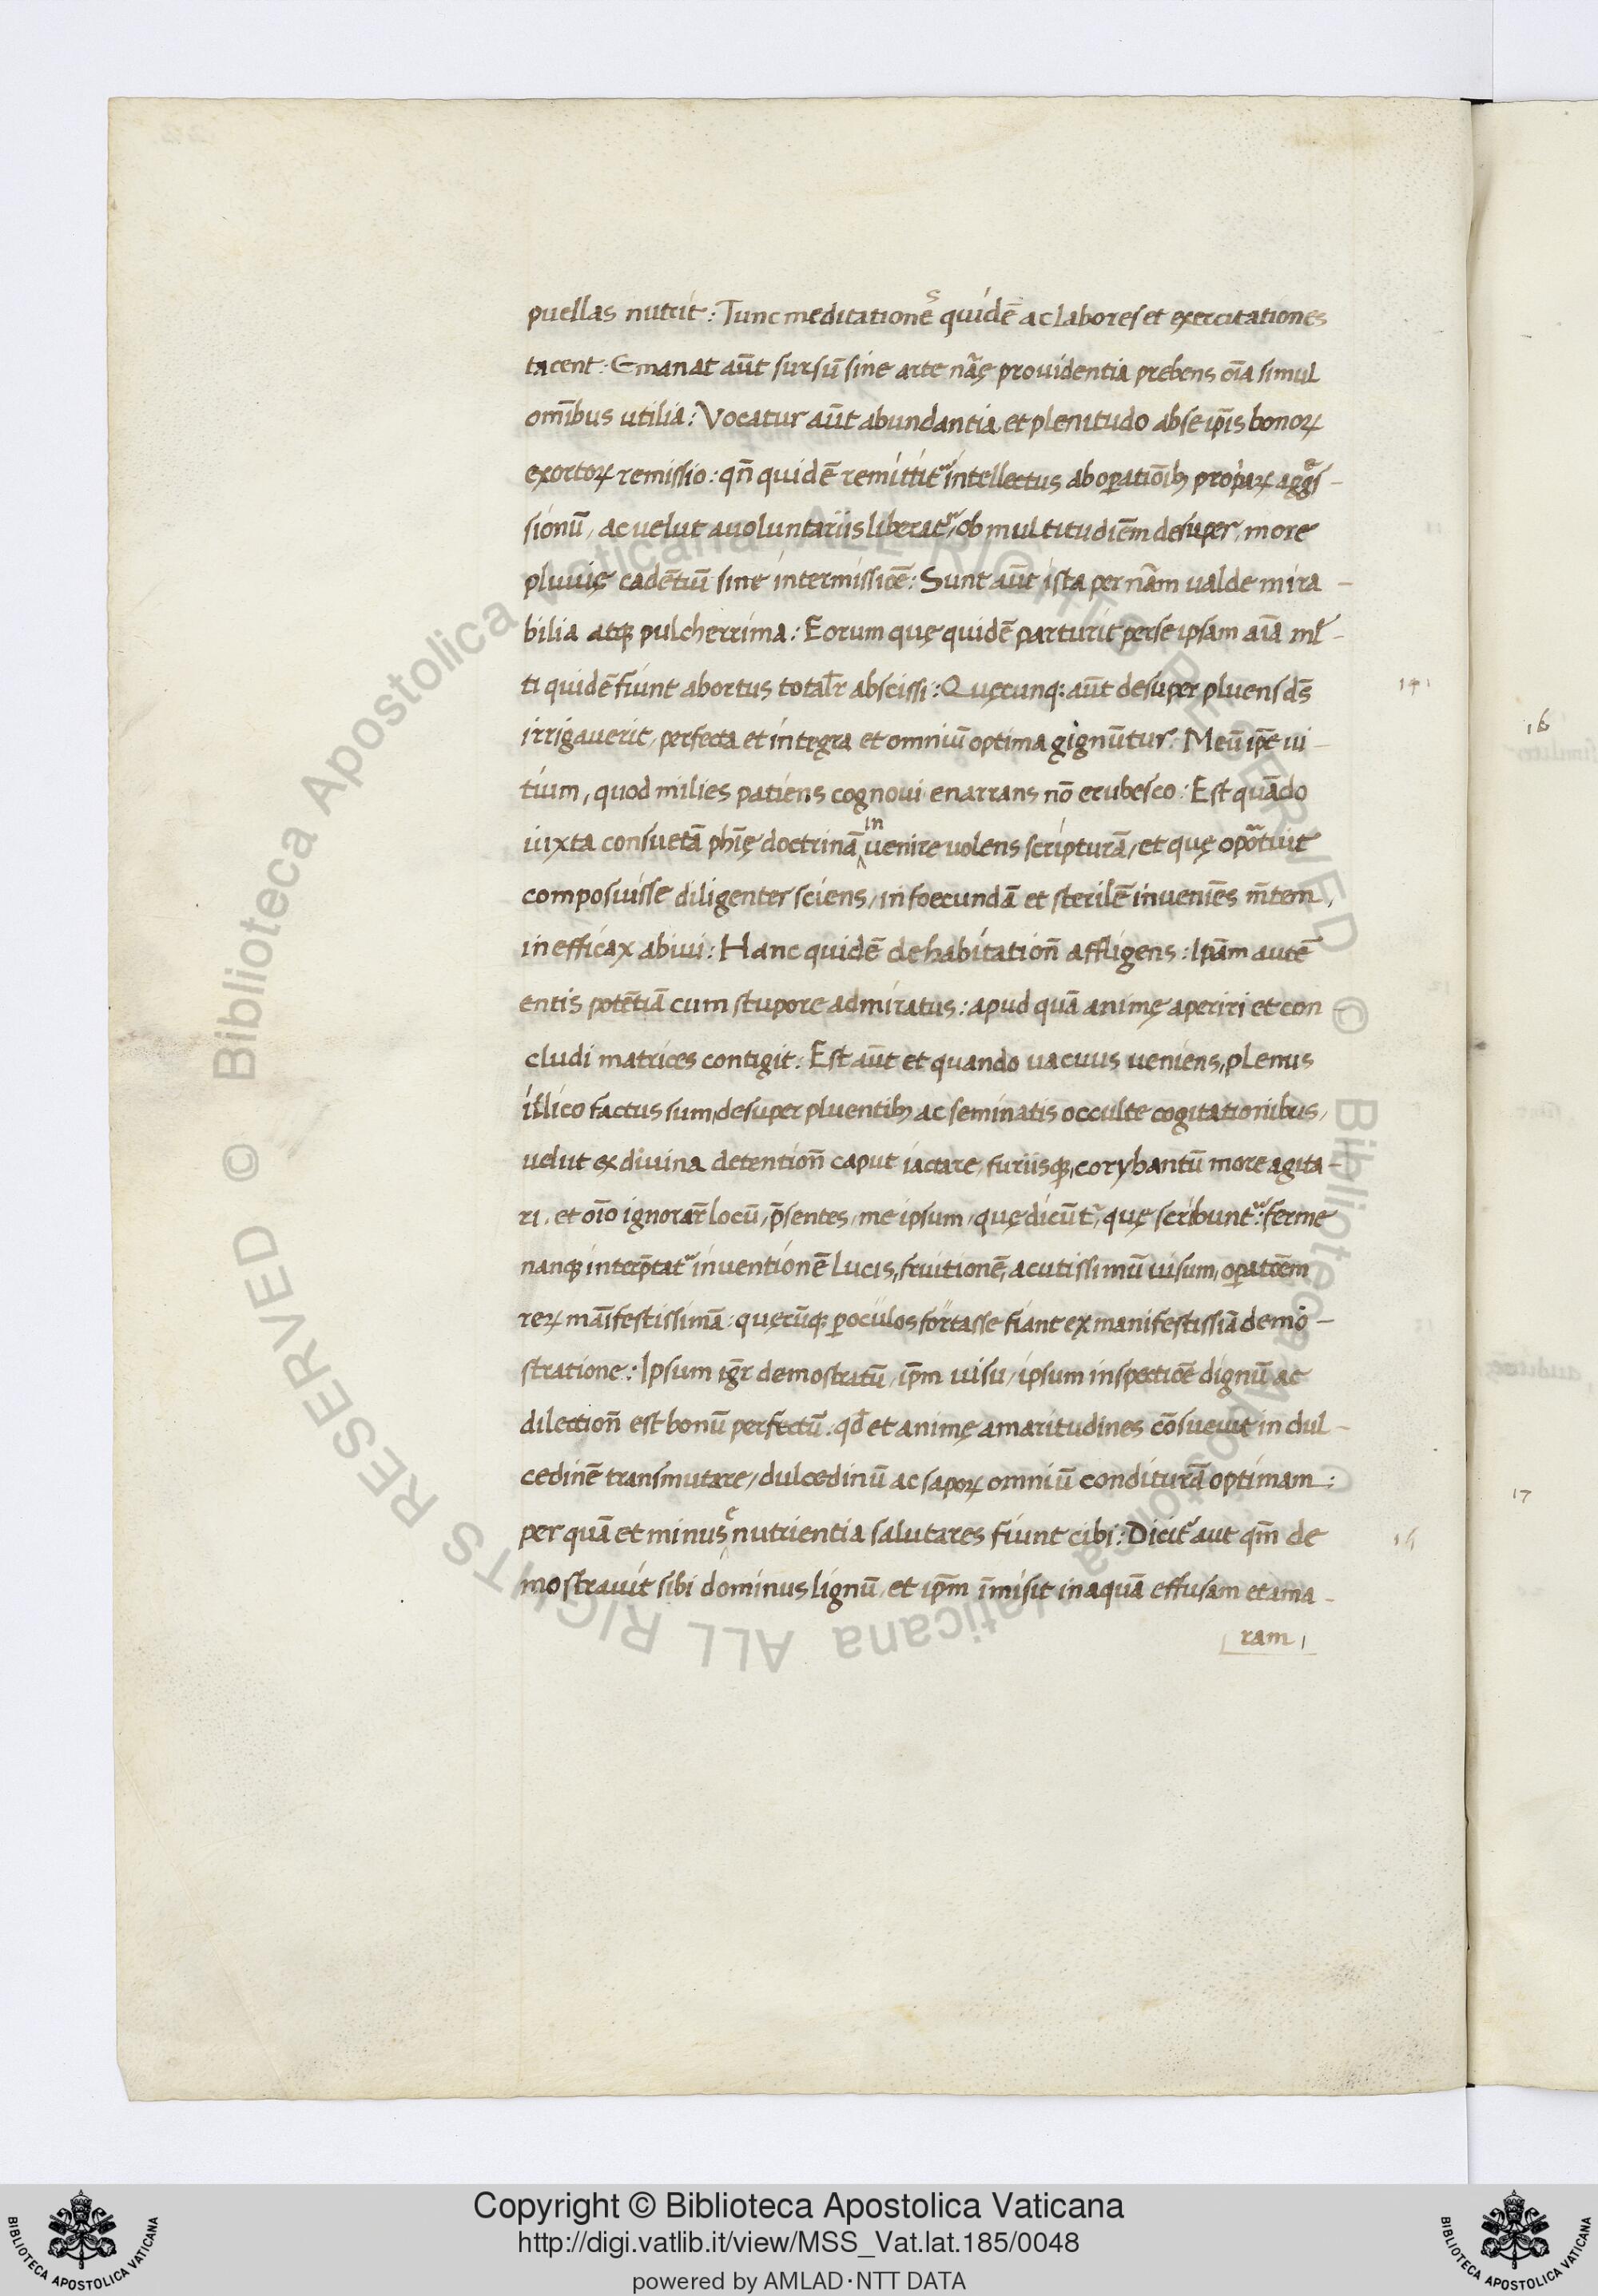 puellas nutrit: Tunc meditationēs quidē ac labores et exercitationes
tacent: Emanat aūt sursū sine arte nāę prouidentia prebens oīa simul
omībus utilia: Vocatur aūt abundantia et plenitudo ab se ip̄is bonoꝝ
exortoꝝ remissio: qn̄ quidē remittit᷑ intellectus ab oꝑatiōibꝫ
sionū, ac uelut auoluntariis liberat᷑, ob multitudiēm desuper, more
pluuię cadētiū sine intermissiōē: Sunt aūt ista per nām ualde mira-
bilia atqꝫ pulcherrima: Eorum quę quidē parturit per se ipsam aīa
ti quidē fiunt abortus totalr̄ abscissi: Quęcunqꝫ aūt desuper pluens ds̄
irrigauerit, perfecta et integra et omniū optima gignūtur: Meū ip̄e ui-
tium, quod milies patiens cognoui enarrans nō erubesco: Est quādo
iuxta consuetā phīę doctrinā inuenire uolens scripturā, et quę oportuit
composuisse diligenter sciens, infoecundā et sterilē inueniēs m̄tem,
inefficax abiui: Hanc quidē de habitation̄ affligens: Ip̄am autē
entis potētiā cum stupore admiratus: apud quā animę aperiri et con
cludi matrices contigit: Est aūt et quando uacuus ueniens, plenus
illico factus sum, desuper pluentibꝫ ac seminatis occulte cogitationibus,
uelut ex diuina detention̄ caput iactare, furiisqꝫ corybantū more agita-
ri, et oīo ignorar̄ locū, p̄sentes, me ipsum, quę dicūt᷑, quę scribunt᷑: ferme
nanqꝫ interp̄tat᷑ inuentionē lucis, fruitionē, acutissimū uisum, oꝑatiōēm
reꝝ māifestissimā: quęcūqꝫ ꝑ oculos fortasse fiant ex manifestissīa demō-
stratione: Ipsum igr̄ demostratū, ip̄m uisu, ipsum inspectiōē dignū ac
dilection̄ est bonū perfectū: qd̄ et animę amaritudines cōsueuit in dul-
cedinē transmutare, dulcedinū ac sapoꝝ omniū conditurā optimam:
per quā et minus nutrientia salutares fiunt cibi: Dicit᷑ aut qm̄ de
mostrauit sibi dominus lignū, et ip̄m īmisit in aquā effusam et ama-
ram,
16
17
Copyright © Biblioteca Apostolica Vaticana
http://digi.vatlib.it/view/MSS_Vat.lat.185/0048
powered by AMLAD·NTT DATA
BIBLIOTECA APOSTOLICA VATICANA
BIBLIOTECA APOSTOLICA VATICANA
© Biblioteca Apostolica Vaticana ALL RIGHTS RESERVED © Biblioteca Apostolica Vaticana ALL RIGHTS RESERVED